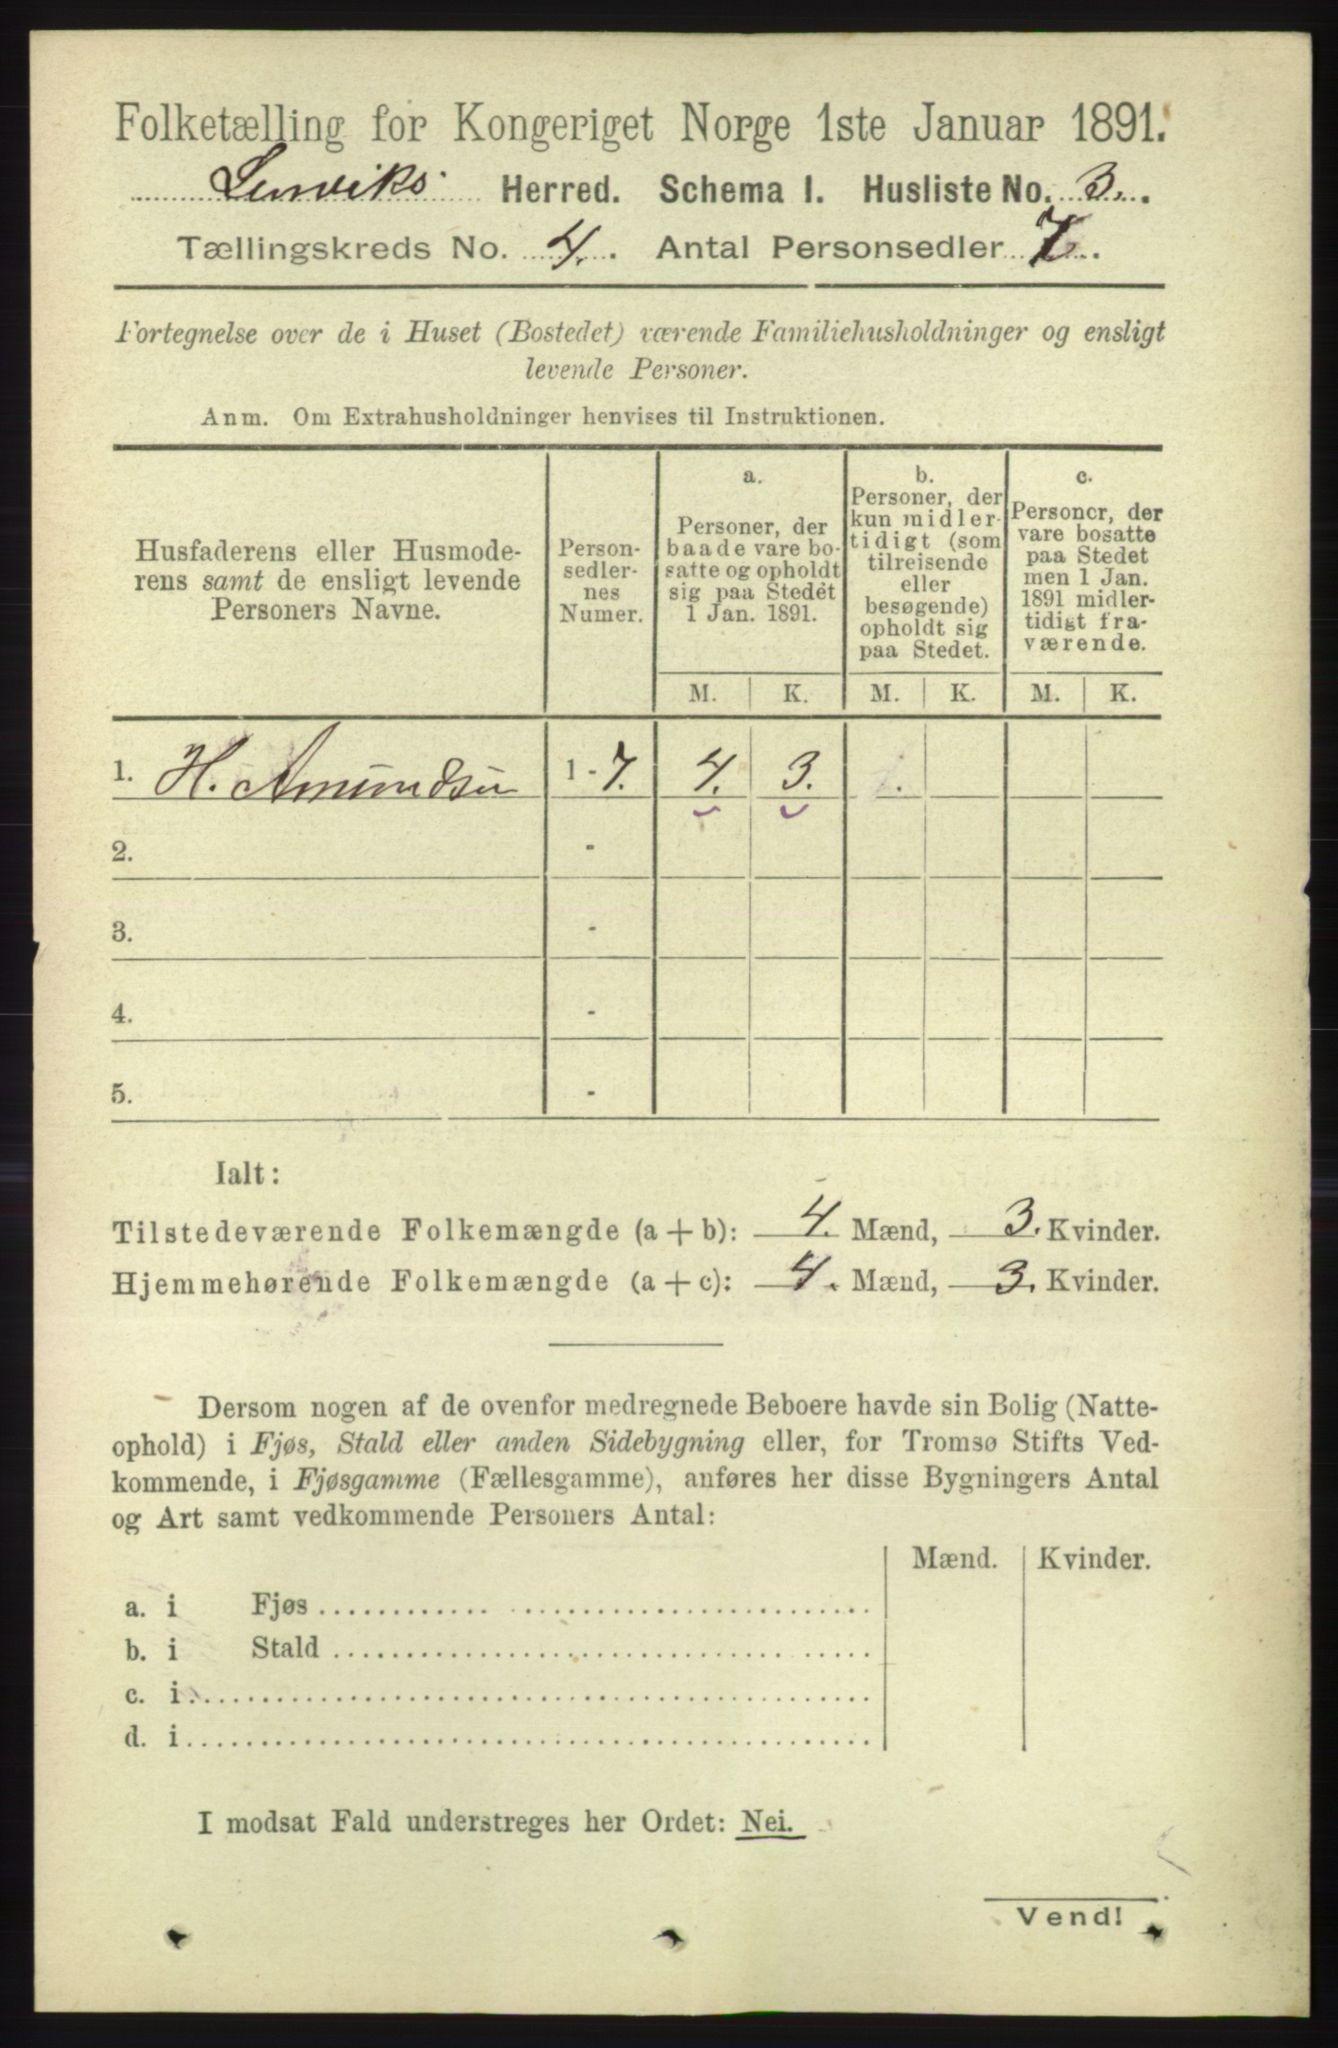 Folketælling for Kongeriget Norge 1ste Januar 1891.
Lenviks Herred. Schema I. Husliste No. 3.
Tællingskreds No. 4. Antal Personsedler 7.
Fortegnelse over de i Huset (Bostedet) værende Familiehusholdninger og ensligt
levende Personer.
Anm. Om Extrahusholdninger henvises til Instruktionen.
Husfaderens eller Husmode-
rens samt de ensligt levende
Personers Navne.
Person-
sedler-
nes
Numer.
a.
Personer, der
baade vare bo-
satte og opholdt
sig paa Stedet
1 Jan. 1891.
b.
Personer, der
kun midler-
tidigt (som
tilreisende
eller
besøgende)
opholdt sig
paa Stedet.
c.
Personer, der
vare bosatte
paa Stedet
men 1 Jan.
1891 midler-
tidigt fra-
værende.
M. K. M. K. M. K.
1. H. Amundsen 1 - 7. 4. 3.
2. -
3. -
4. -
5. -
Ialt:
Tilstedeværende Folkemængde (a + b): 4. Mænd, 3. Kvinder.
Hjemmehørende Folkemængde (a + c): 4. Mænd, 3. Kvinder.
Dersom nogen af de ovenfor medregnede Beboere havde sin Bolig (Natte-
ophold) i Fjøs, Stald eller anden Sidebygning eller, for Tromsø Stifts Ved-
kommende, i Fjøsgamme (Fællesgamme), anføres her disse Bygningers Antal
og Art samt vedkommende Personers Antal:
Mænd. Kvinder.
a. i Fjøs
b. i Stald
c. i
d. i
I modsat Fald understreges her Ordet: Nei.
Vend!